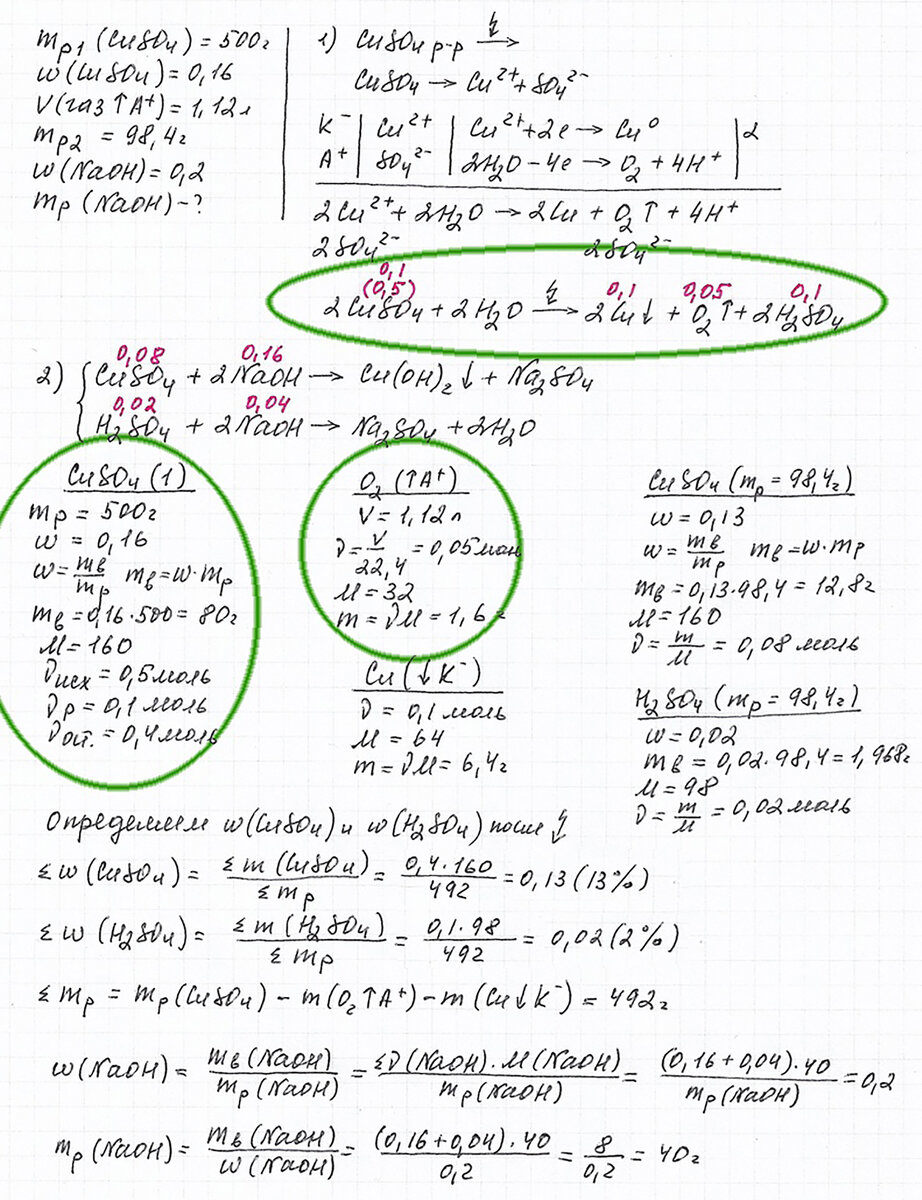 mр1 (CuSO4) = 500г
w(CuSO4) = 0,16
V(газ↑A+) = 1,12л
mр2 = 98,4г
w(NaOH) = 0,2
mр(NaOH) - ?
1) CuSO4 р-р ↯→
CuSO4 → Cu²⁺ + SO4²⁻
K⁻ | Cu²⁺ | Cu²⁺ + 2e → Cu⁰ | 2
A⁺ | SO4²⁻ | 2H2O - 4e → O2 + 4H⁺
2Cu²⁺ + 2H2O → 2Cu + O2↑ + 4H⁺
2SO4²⁻ 2SO4²⁻
0,1
(0,5) 0,1 0,05 0,1
2CuSO4 + 2H2O ↯→ 2Cu↓ + O2↑ + 2H2SO4
0,08 0,16
2) { CuSO4 + 2NaOH → Cu(OH)2↓ + Na2SO4
0,02 0,04
H2SO4 + 2NaOH → Na2SO4 + 2H2O
CuSO4 (1)
mр = 500г
w = 0,16
w = mв/mр mв = w·mр
mв = 0,16·500 = 80г
M = 160
νисх = 0,5 моль
νр = 0,1 моль
νост. = 0,4 моль
O2 (↑A⁺)
V = 1,12л
ν = V/22,4 = 0,05 мол
M = 32
m = νM = 1,6г
Cu (↓K⁻)
ν = 0,1 моль
M = 64
m = νM = 6,4г
CuSO4 (mр = 98,4г)
w = 0,13
w = mв/mр mв = w·mр
mв = 0,13·98,4 = 12,8г
M = 160
ν = m/M = 0,08 моль
H2SO4 (mр = 98,4г)
w = 0,02
mв = 0,02·98,4 = 1,968г
M = 98
ν = m/M = 0,02 моль
Определяем w(CuSO4) и w(H2SO4) после ↯
Σw(CuSO4) = Σm(CuSO4)/Σmр = 0,4·160/492 = 0,13 (13%)
Σw(H2SO4) = Σm(H2SO4)/Σmр = 0,1·98/492 = 0,02 (2%)
Σmр = mр(CuSO4) - m(O2↑A⁺) - m(Cu↓K⁻) = 492г
w(NaOH) = mв(NaOH)/mр(NaOH) = Σν(NaOH)·M(NaOH)/mр(NaOH) = (0,16+0,04)·40/mр(NaOH) = 0,2
mр(NaOH) = mв(NaOH)/w(NaOH) = (0,16+0,04)·40/0,2 = 8/0,2 = 40г